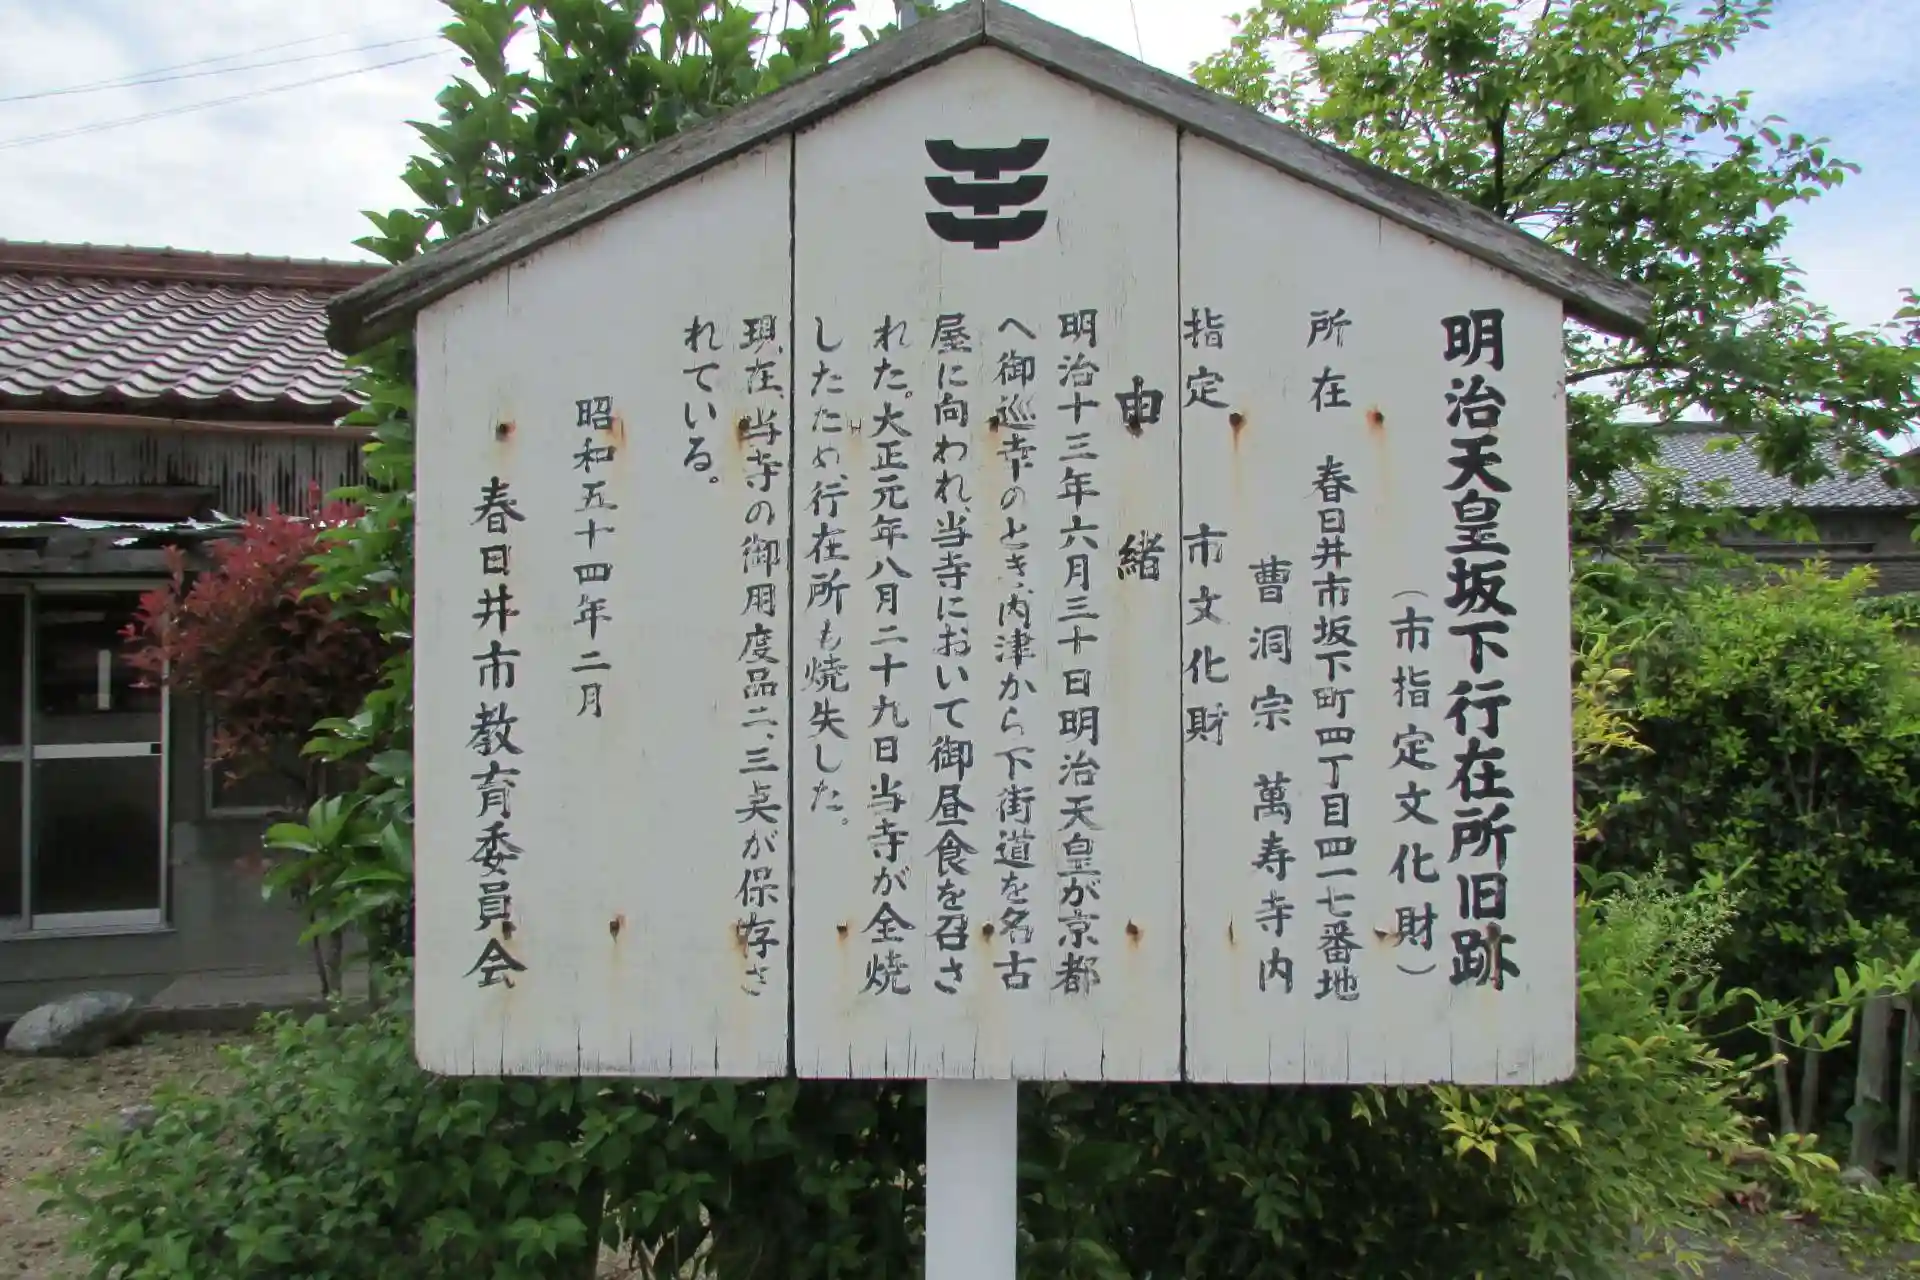 明治天皇坂下行在所旧跡
（市指定文化財）
所在　春日井市坂下町四丁目四一七番地
曹洞宗　萬寿寺内
指定　市文化財
由緒
明治十三年六月三十日明治天皇が京都
へ御巡幸のとき、内津から下街道を名古
屋に向われ、当寺において御昼食を召さ
れた。大正元年八月二十九日当寺が全焼
したため、行在所も焼失した。
現在、当寺の御用度品二、三点が保存さ
れている。
昭和五十四年二月
春日井市教育委員会